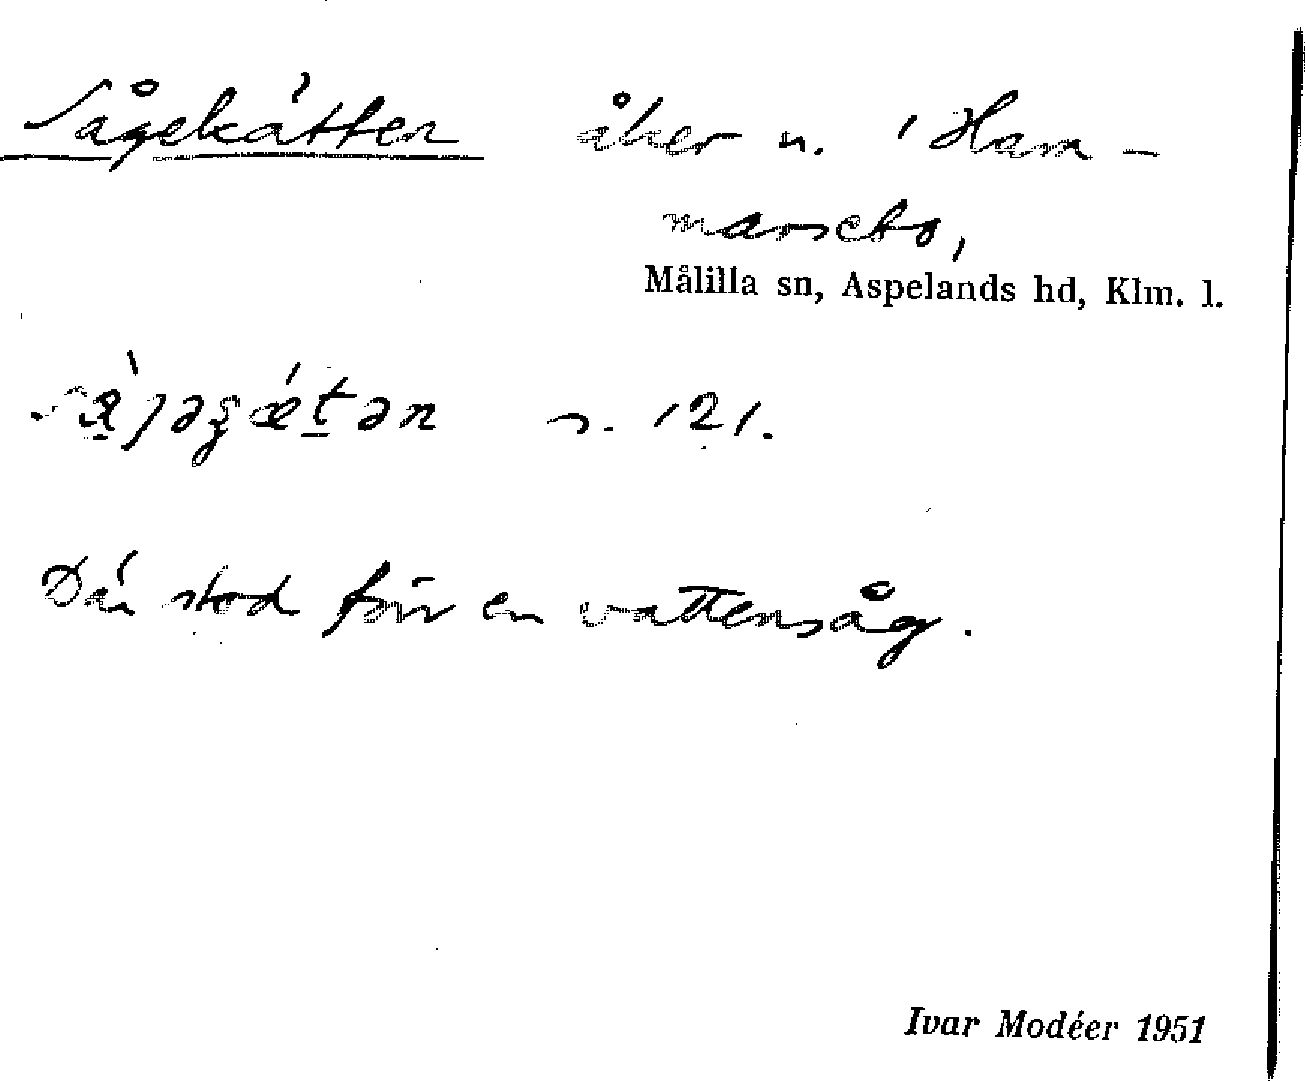 Sågekätten åker n. i Ham-
marsebo,
Målilla sn, Aspelands hd, Klm. l.
s. 121.
Där stod förr en vattensåg.
Ivar Modéer 1951